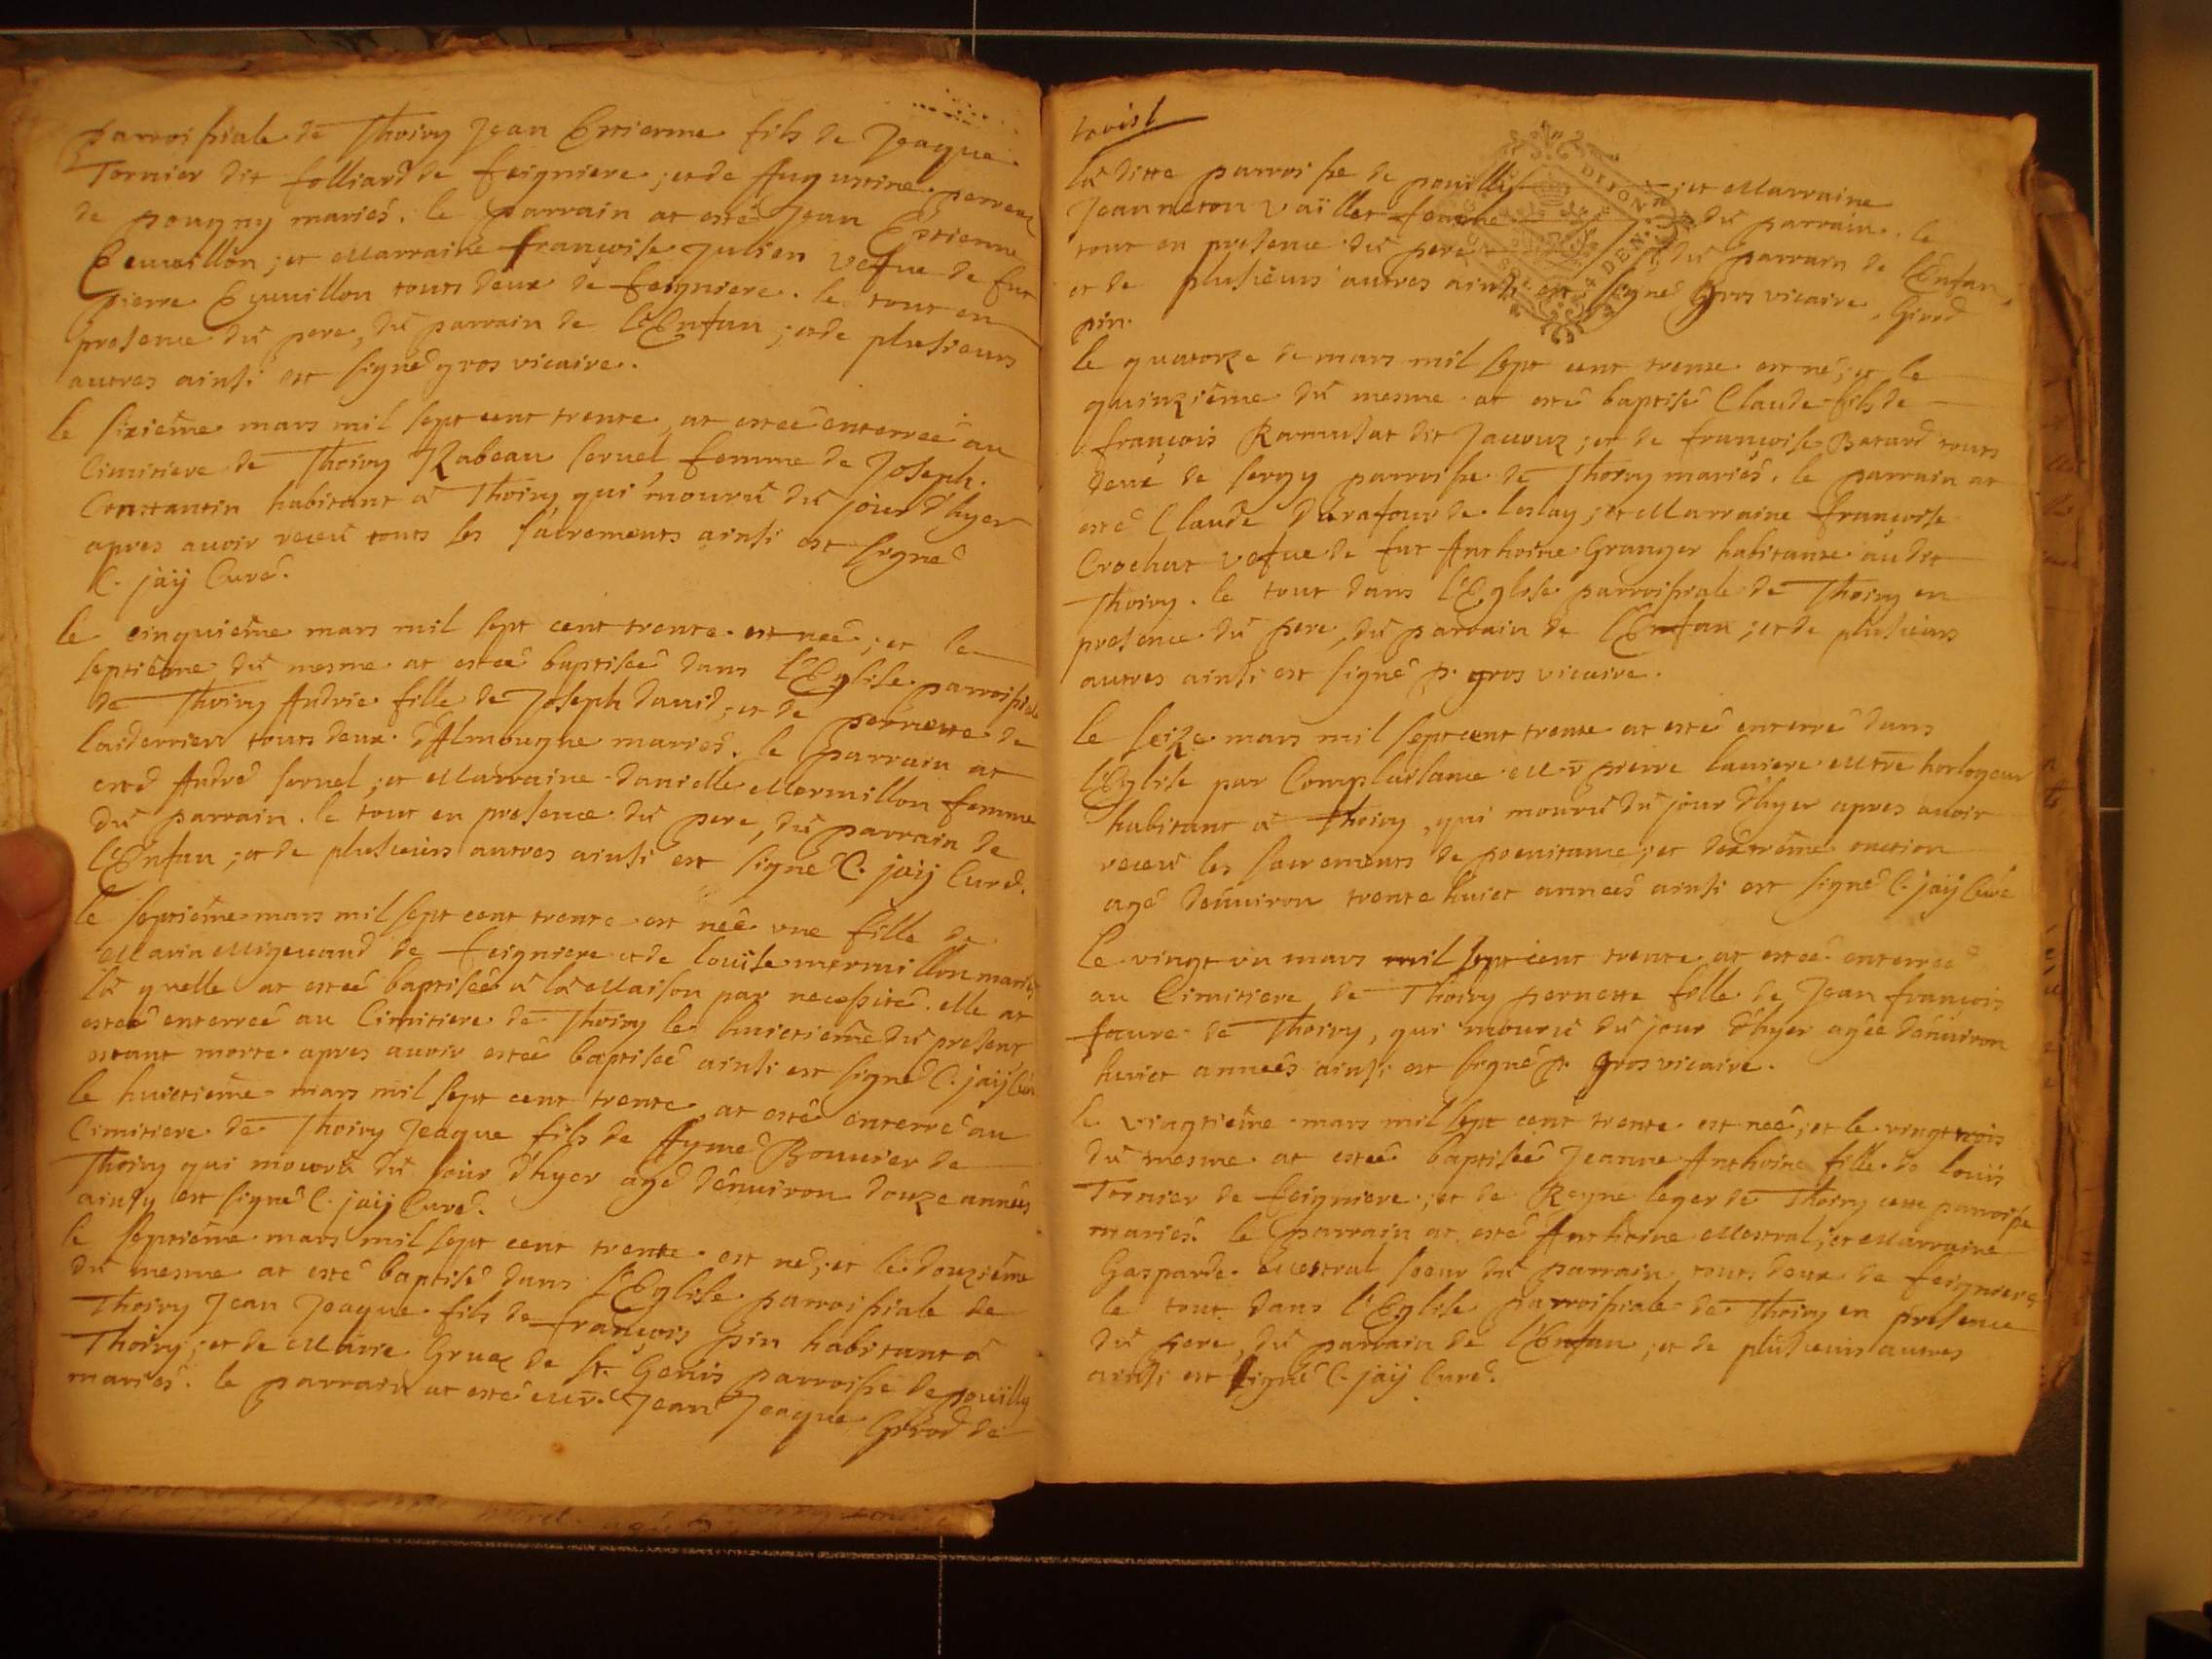 parroissiale de Thoiry Jean Estienne fils de Jeaque
Tornier dit folliard de feigniere ; et de Augustine perreaux
de pougny mariés. le parrain at esté Jean Estienne
Ecuvillon ; et Marraine françoise Julien vefue de fut
pierre Ecuvillon touts deux de feigniere. le tout en
presence du pere, du parrain de l'Enfan ; et de plusieurs
autres ainsi est signé gros vicaire.
le sixiême mars mil sept cent trente at esteé enterreé au
Cimitiere de Thoiry Rabeau servel femme de Joseph
Constantin habitant à Thoiry qui mourut du jour d'hyer
apres avoir receu touts les sacrements ainsi est signé
C. jaÿ Curé.
le cinquiême mars mil sept cent trente est neé ; et le
septiême du mesme at esteé baptiseé dans l'Eglise parroissiale
de Thoiry Andrie fille de Joseph david ; et de pernette de
laiderrier touts deux d'Almougne mariés. le parrain at
esté André servel ; et Marraine danielle Mermillon femme
du parrain. le tout en presence du pere, du parrain de
l'Enfan ; et de plusieurs autres ainsi est signé C. jaÿ Curé.
le septiême mars mil sept cent trente est neé vne fille de
Marin Migevand de feigniere et de louise mermillon mariés
la quelle at esteé baptiseé à la Maison par necessité. elle at
esteé enterreé au Cimitiere de Thoiry le huictiême du present
estant morte apres avoir esteé baptiseé ainsi est signé C. jaÿ Curé
le huictiême mars mil sept cent trente at esté enterré au
Cimitiere de Thoiry Jeaque fils de Aymé Bouvier de
Thoiry qui mourut du jour d'hyer agé d'environ douze anneés
ainsy est signé C. jaÿ Curé.
le septiême mars mil sept cent trente est né ; et le douziême
du mesme at esté baptisé dans l'Eglise parroissiale de
Thoiry Jean Jeaque fils de françois pin habitant à
Thoiry ; et de Marie Gruaz de St. Genis parroisse de pouilly
mariés. le parrain at esté Mr. Jean Jeaque Girod de
la ditte parroisse de pouilly ; et Marraine
Jeanneton Vaillet femme du parrain. le
tout en presence du pere, du parrain de l'Enfan,
et de plusieurs autres ainsi est signé Gros vicaire, Girod
pin.
DIJON
le quatorze de mars mil sept cent trente est né ; et le
quinziême du mesme at esté baptisé Claude fils de
françois Ramusat dit Jacouz ; et de françoise Batard touts
deux de sergy parroisse de Thoiry mariés. le parrain at
esté Claude Durafour de leslay ; et Marraine françoise
Crochat vefue de fut Anthoine Granger habitante au dit
Thoiry. le tout dans l'Eglise parroissiale de Thoiry en
presence du pere, du parrain de l'Enfan ; et de plusieurs
autres ainsi est signé p. gros vicaire.
le seize mars mil sept cent trente at esté enterré dans
l'Eglise par Complaisance Mr. pierre laniere Mtre horlogeur
habitant à Thoiry, qui mourut du jour d'hyer apres avoir
receu les sacrements de poenitance ; et d'extrême onction
agé d'environ trente huict anneés ainsi est signé C. jaÿ Curé
le vingt vn mars mil sept cent trente at esteé enterreé
au Cimitiere de Thoiry pernette fille de Jean françois
favre de Thoiry, qui mourut du jour d'hyer ageé d'environ
huict anneés ainsi est signé p. Gros vicaire.
le vingtiême mars mil sept cent trente est neé ; et le vingt trois
du mesme at esteé baptiseé Jeanne Anthoine fille de louis
Tornier de feigniere ; et de Reyne leger de Thoiry cette parroisse
mariés. le parrain at esté Anthoine Mestral ; et Marraine
Gasparde Mestral soeur du parrain touts deux de feigniere
le tout dans l'Eglise parroissiale de Thoiry en presence
du pere, du parrain de l'Enfan ; et de plusieurs autres
ainsi est signé C. jaÿ Curé.